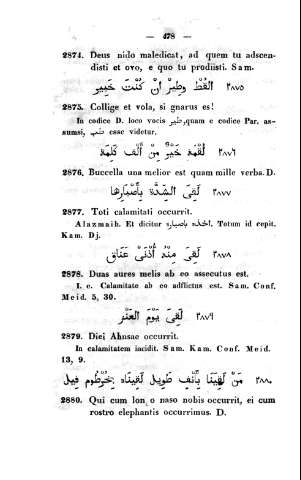 — 478 —
2874. Deus nido maledicat, ad quem tu adscen-
disti et ovo, e quo tu prodiisti. Sam.
٢٨٧٥ الْقُطْ وَطِيرْ إِنْ كُنْتَ خَبِير
2875. Collige et vola, si gnarus es!
In codice D. loco vocis طير, quam e codice Par. as-
sumsi, طب esse videtur.
٢٨٧٦ لُقْمَة خَيْر مِنْ أَلْف كَلِمَة
2876. Buccella una melior est quam mille verba. D.
٢٨٧٧ لَقِىَ الشِدَّةَ بِأَصْبَارِهَا
2877. Toti calamitati occurrit.
Alazmaih. Et dicitur اخذه باصباره. Totum id cepit.
Kam. Dj.
٢٨٧٨ لَقِىَ مِنْهُ أُذُنَىْ عَنَاقٍ
2878. Duas aures melis ab eo assecutus est.
I. e. Calamitate ab eo adflictus est. Sam. Conf.
Meid. 5, 30.
٢٨٧٩ لَقِىَ يَوْمَ الْعَنْزِ
2879. Diei Ahnsae occurrit.
In calamitatem incidit. Sam. Kam. Conf. Meid.
13, 9.
٢٨٨٠ مَنْ لَقِيَنَا بِأَنْفٍ طَوِيل لَقِينَاه بِخُرْطُوم فِيل
2880. Qui cum lon o naso nobis occurrit, ei cum
rostro elephantis occurrimus. D.